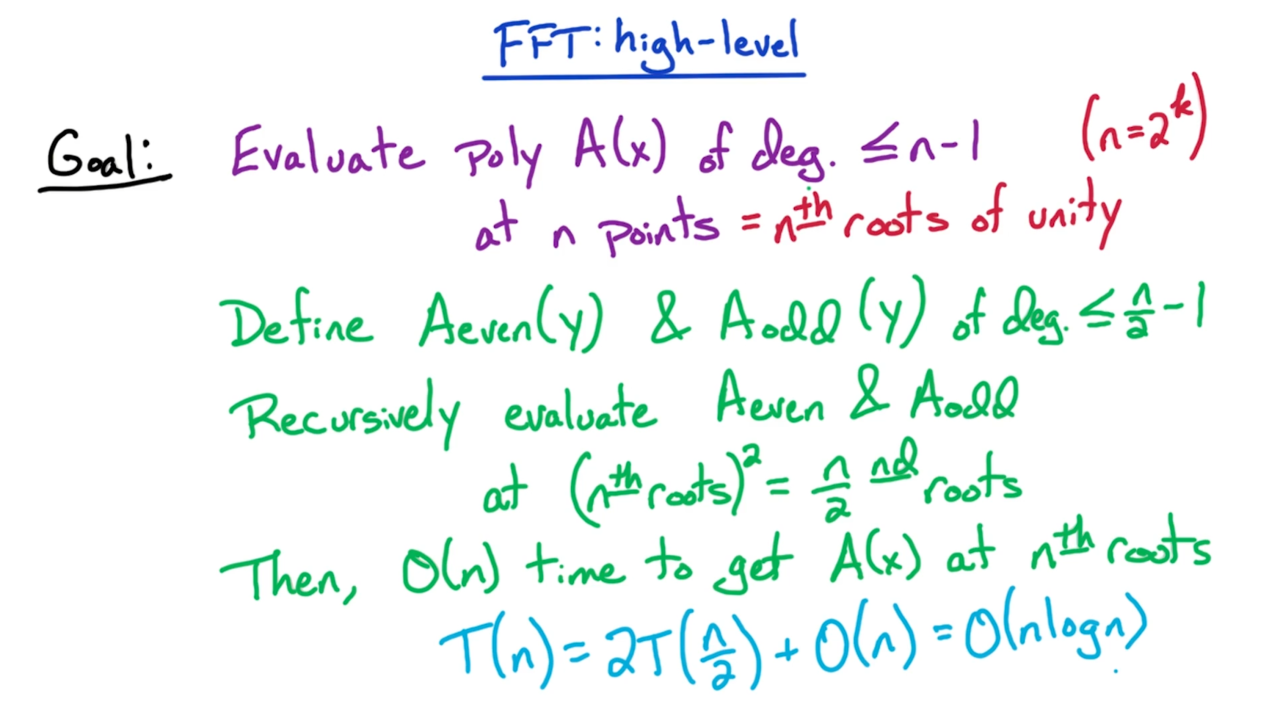 FFT: high-level
Goal: Evaluate poly A(x) of deg. ≤ n-1 (n=2^k)
at n points = nth roots of unity
Define Aeven(y) & Aodd(y) of deg. ≤ n/2 - 1
Recursively evaluate Aeven & Aodd
at (nth roots)^2 = n/2 nd roots
Then, O(n) time to get A(x) at nth roots
T(n) = 2T(n/2) + O(n) = O(nlogn)